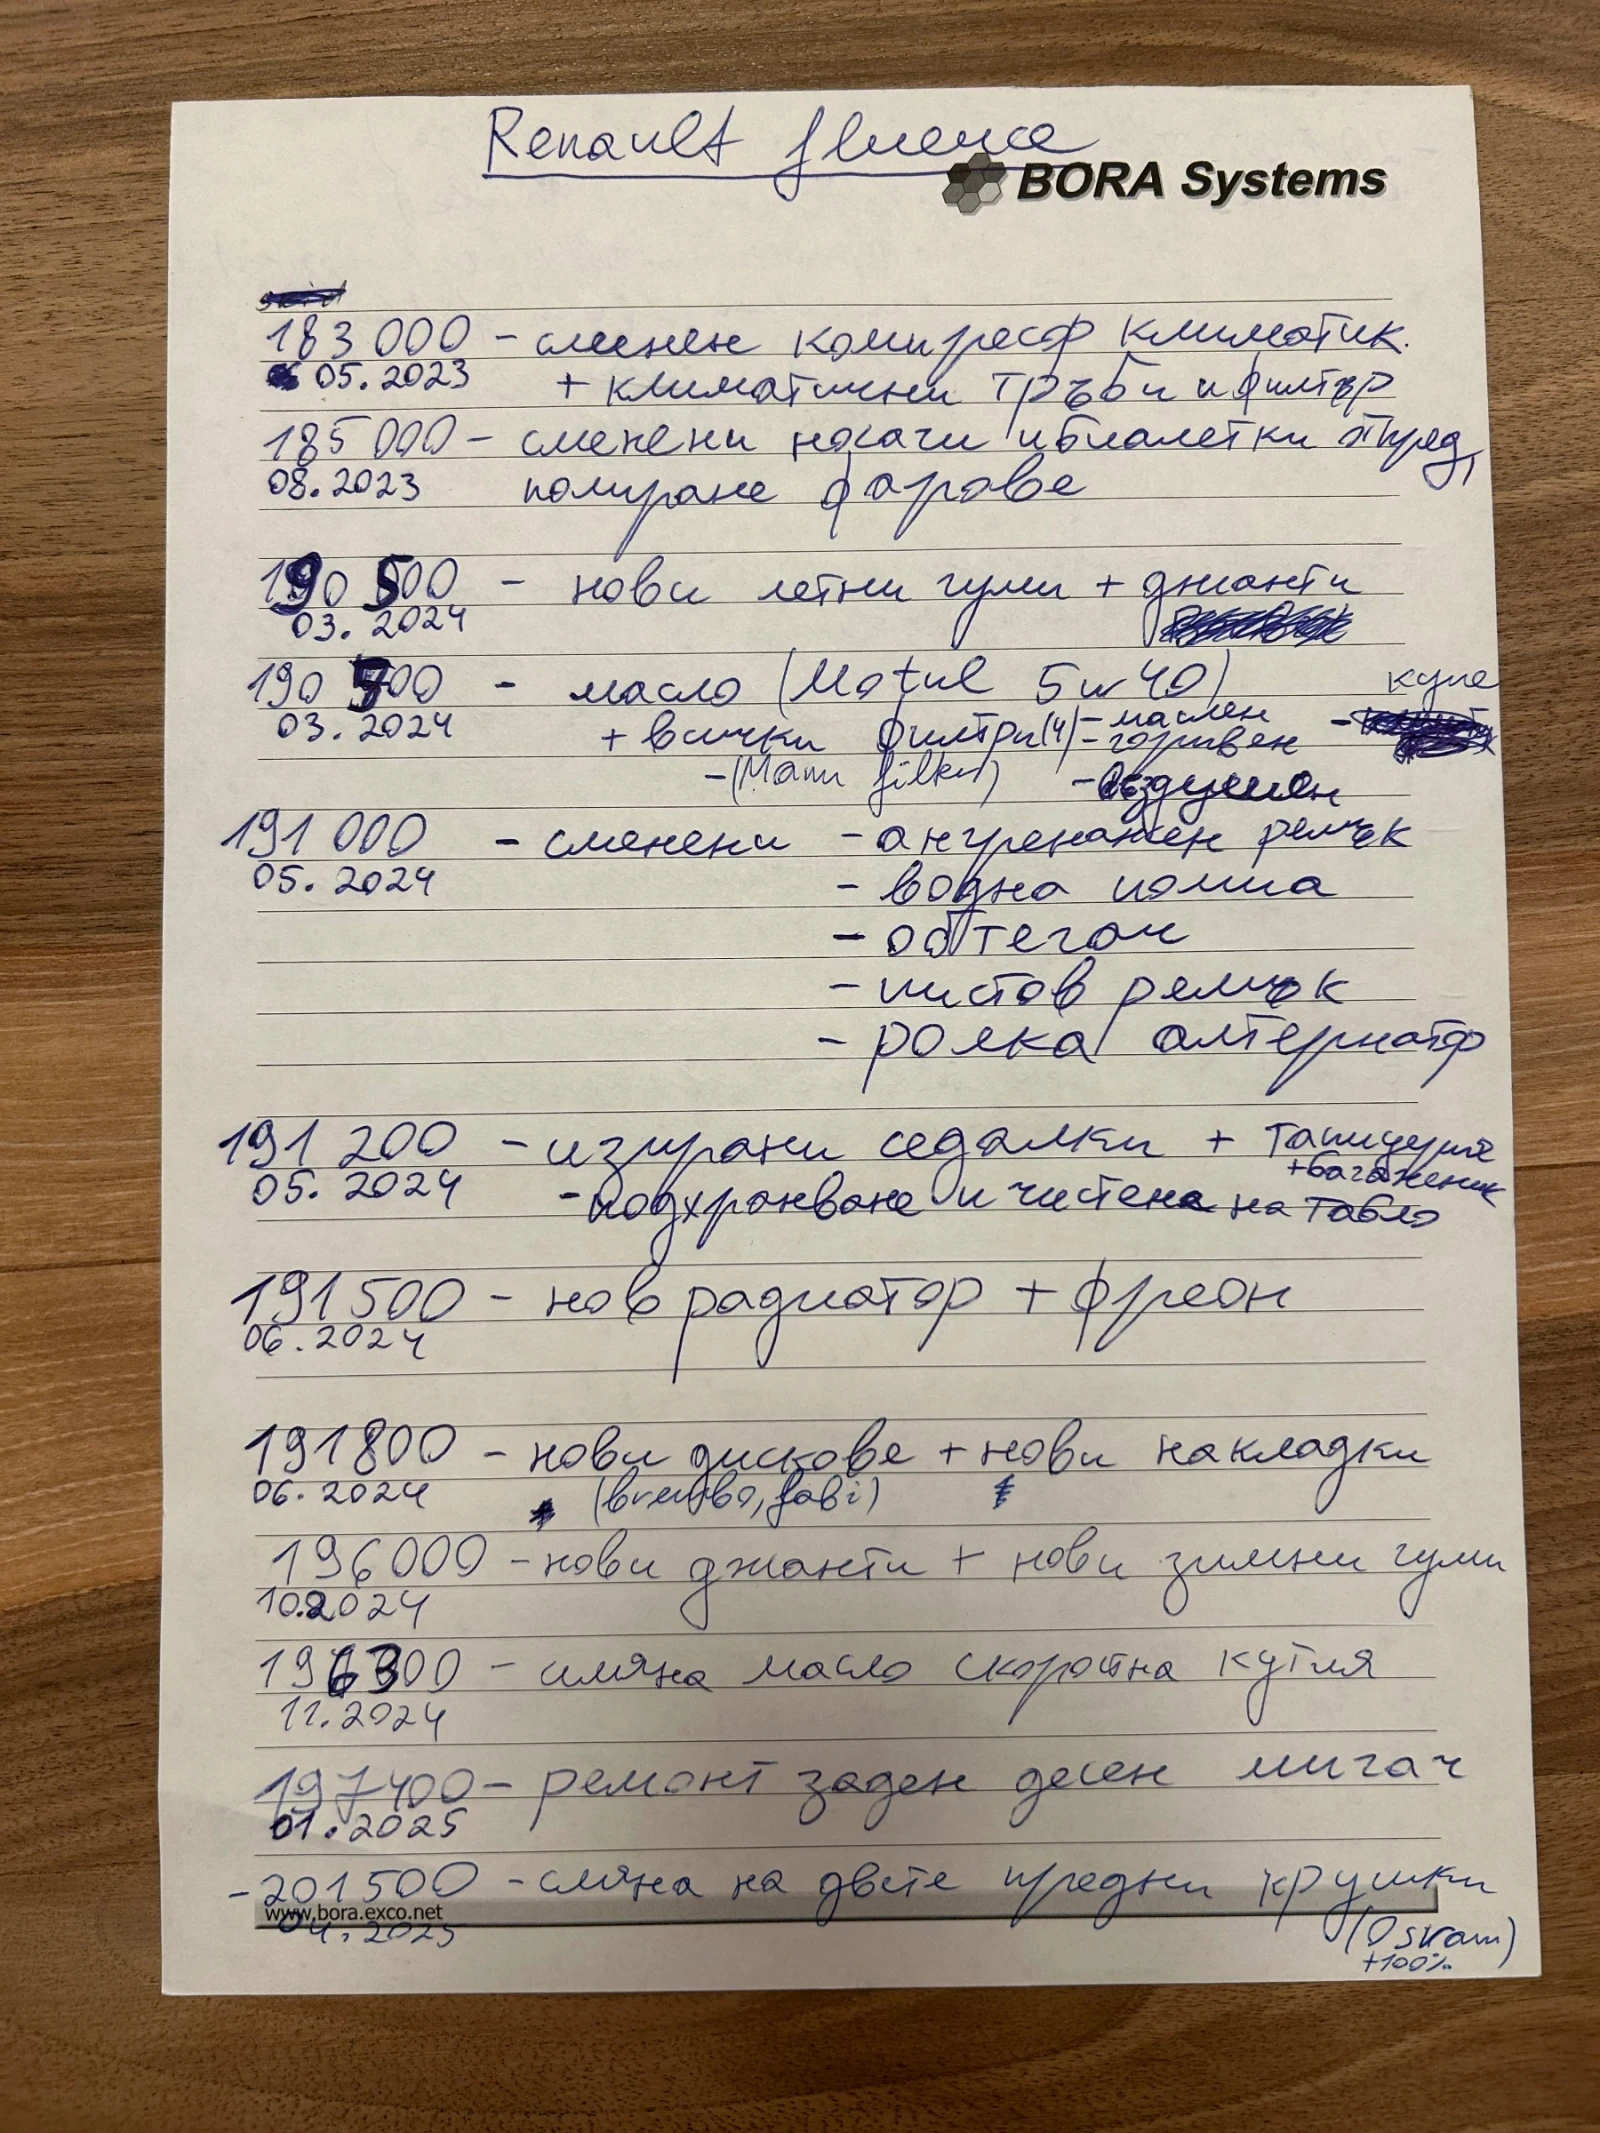 Renault fluence
BORA Systems
183 000 - сменен компресор климатик.
05.2023 + климатични тръби и филтър
185 000 - сменени носачи и биалетки отпред,
08.2023 полиране фарове
190 500 - нови летни гуми + джанти
03.2024
190 700 - масло (Motul 5w40) купе
03.2024 + всички филтри (4) - маслен -
- горивен
- (Mann filter) - въздушен
191 000 - сменени - ангренажен ремък
05.2024 - водна помпа
- обтегач
- пистов ремък
- ролка алтернатор
191 200 - изпрани седалки + тапицерия
+ багажник
05.2024 - подхранване и чистене на табло
191 500 - нов радиатор + фреон
06.2024
191800 - нови дискове + нови накладки
06.2024 (brembo, sabi)
196000 - нови джанти + нови зимни гуми
10.2024
196300 - смяна масло скоростна кутия
11.2024
197400 - ремонт заден десен мигач
01.2025
- 201500 - смяна на двете предни крушки
www.bora.exco.net
04.2025 (Osram)
+100%